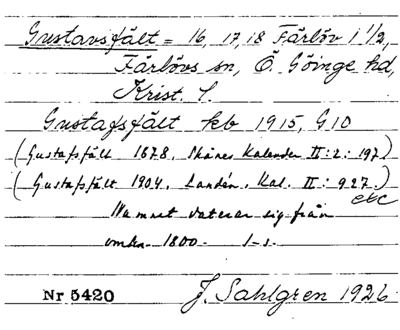 Gustavsfält = 16, 17, 18 Färlöv 1 1/2,
Färlövs sn, Ö. Göinge hd,
Krist. l.
Gustafsfält kb 1915, G10
(Gustafsfält 1878, Skånes Kalender II: 2: 197)
(Gustafsfält 1904, Landén, Kal. II: 927.)
etc
Namnet daterar sig från
omkr. 1800-
Nr 5420 J. Sahlgren 1926